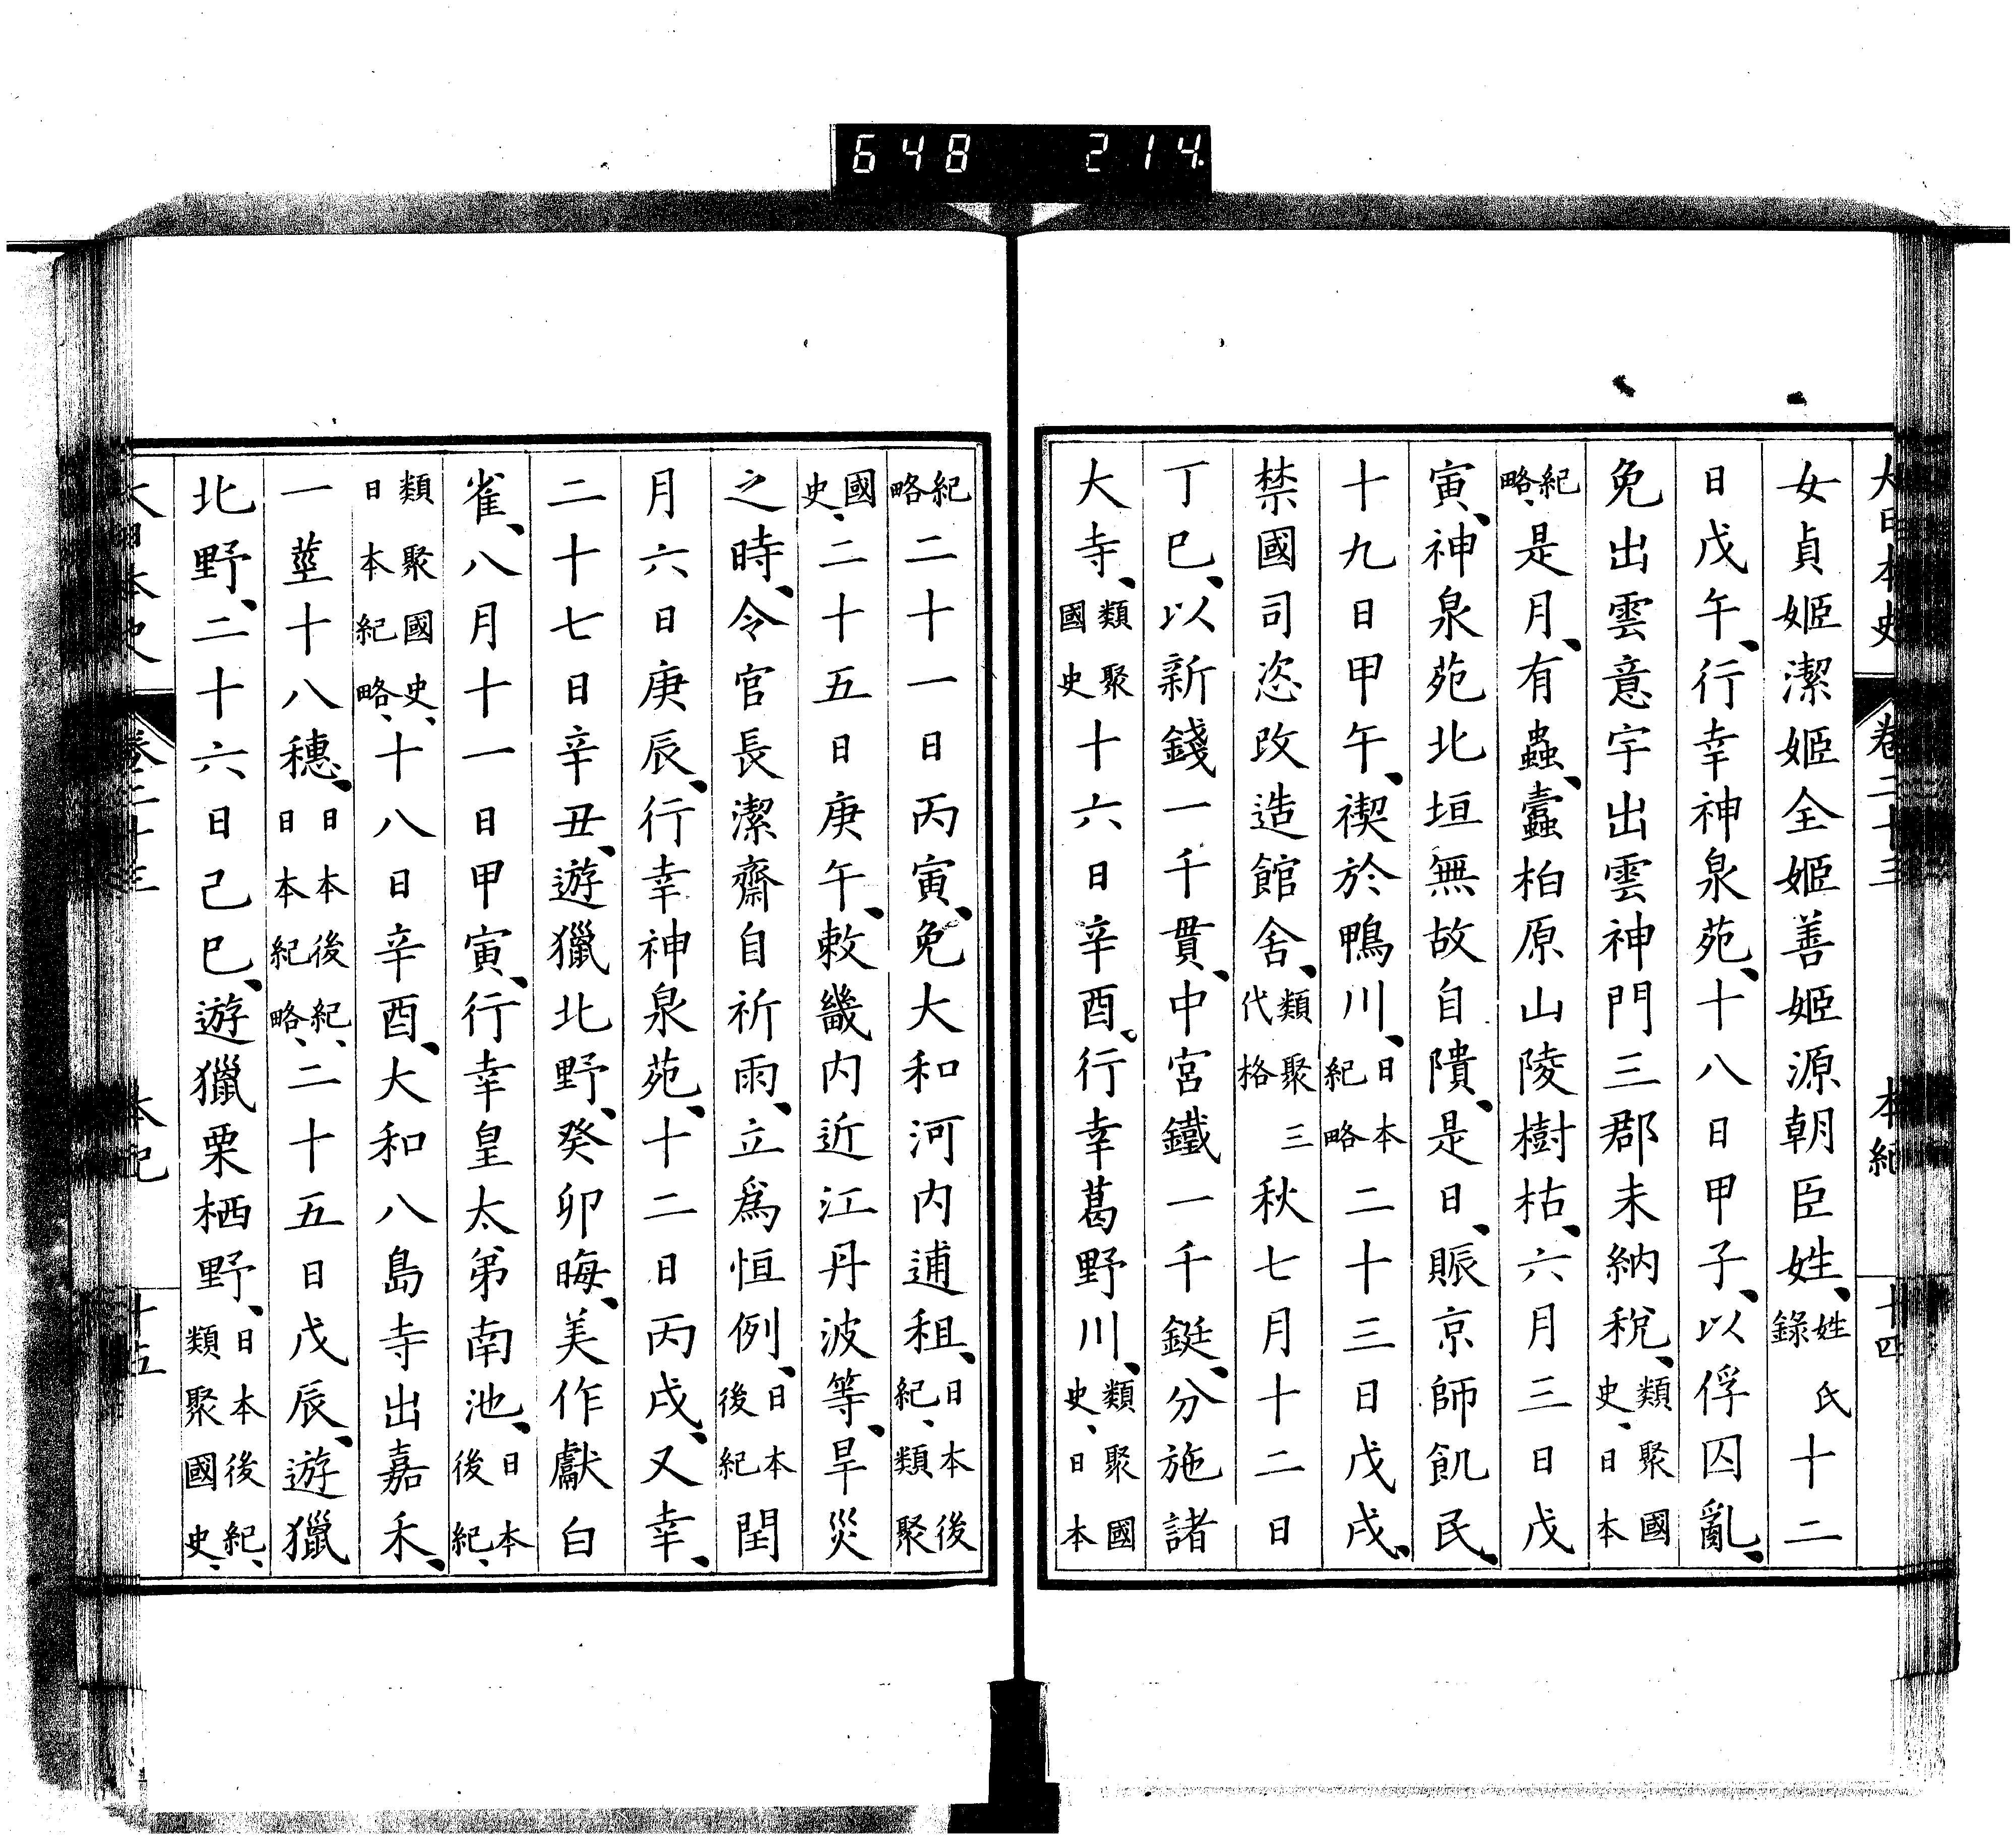 648 214
大日本史 卷二十三 本紀 十四
女貞姬潔姬全姬善姬源朝臣姓、姓氏錄十二
日戊午、行幸神泉苑、十八日甲子、以俘囚亂、
免出雲意宇出雲神門三郡未納稅、類聚國史、日本
紀略、是月、有蟲、蠹柏原山陵樹枯、六月三日戊
寅、神泉苑北垣無故自隤、是日、賑京師飢民、
十九日甲午、禊於鴨川、日本紀略二十三日戊戌、
禁國司恣改造館舍、類聚三代格秋七月十二日
丁巳、以新錢一千貫、中宮鐵一千鋌、分施諸
大寺、類聚國史十六日辛酉。行幸葛野川、類聚國史、日本
紀略二十一日丙寅、免大和河內逋租、日本後紀、類聚
國史、二十五日庚午、敕畿內近江丹波等、旱災
之時、令官長潔齋自祈雨、立爲恒例、日本後紀閏
月六日庚辰、行幸神泉苑、十二日丙戌、又幸、
二十七日辛丑、遊獵北野、癸卯晦、美作獻白
雀、八月十一日甲寅、行幸皇太弟南池、日本後紀、
類聚國史、日本紀略、十八日辛酉、大和八島寺出嘉禾、
一莖十八穗、日本後紀、日本紀略、二十五日戊辰、遊獵
北野、二十六日己巳、遊獵栗栖野、日本後紀、類聚國史、
大日本史 卷二十三 本紀 十五